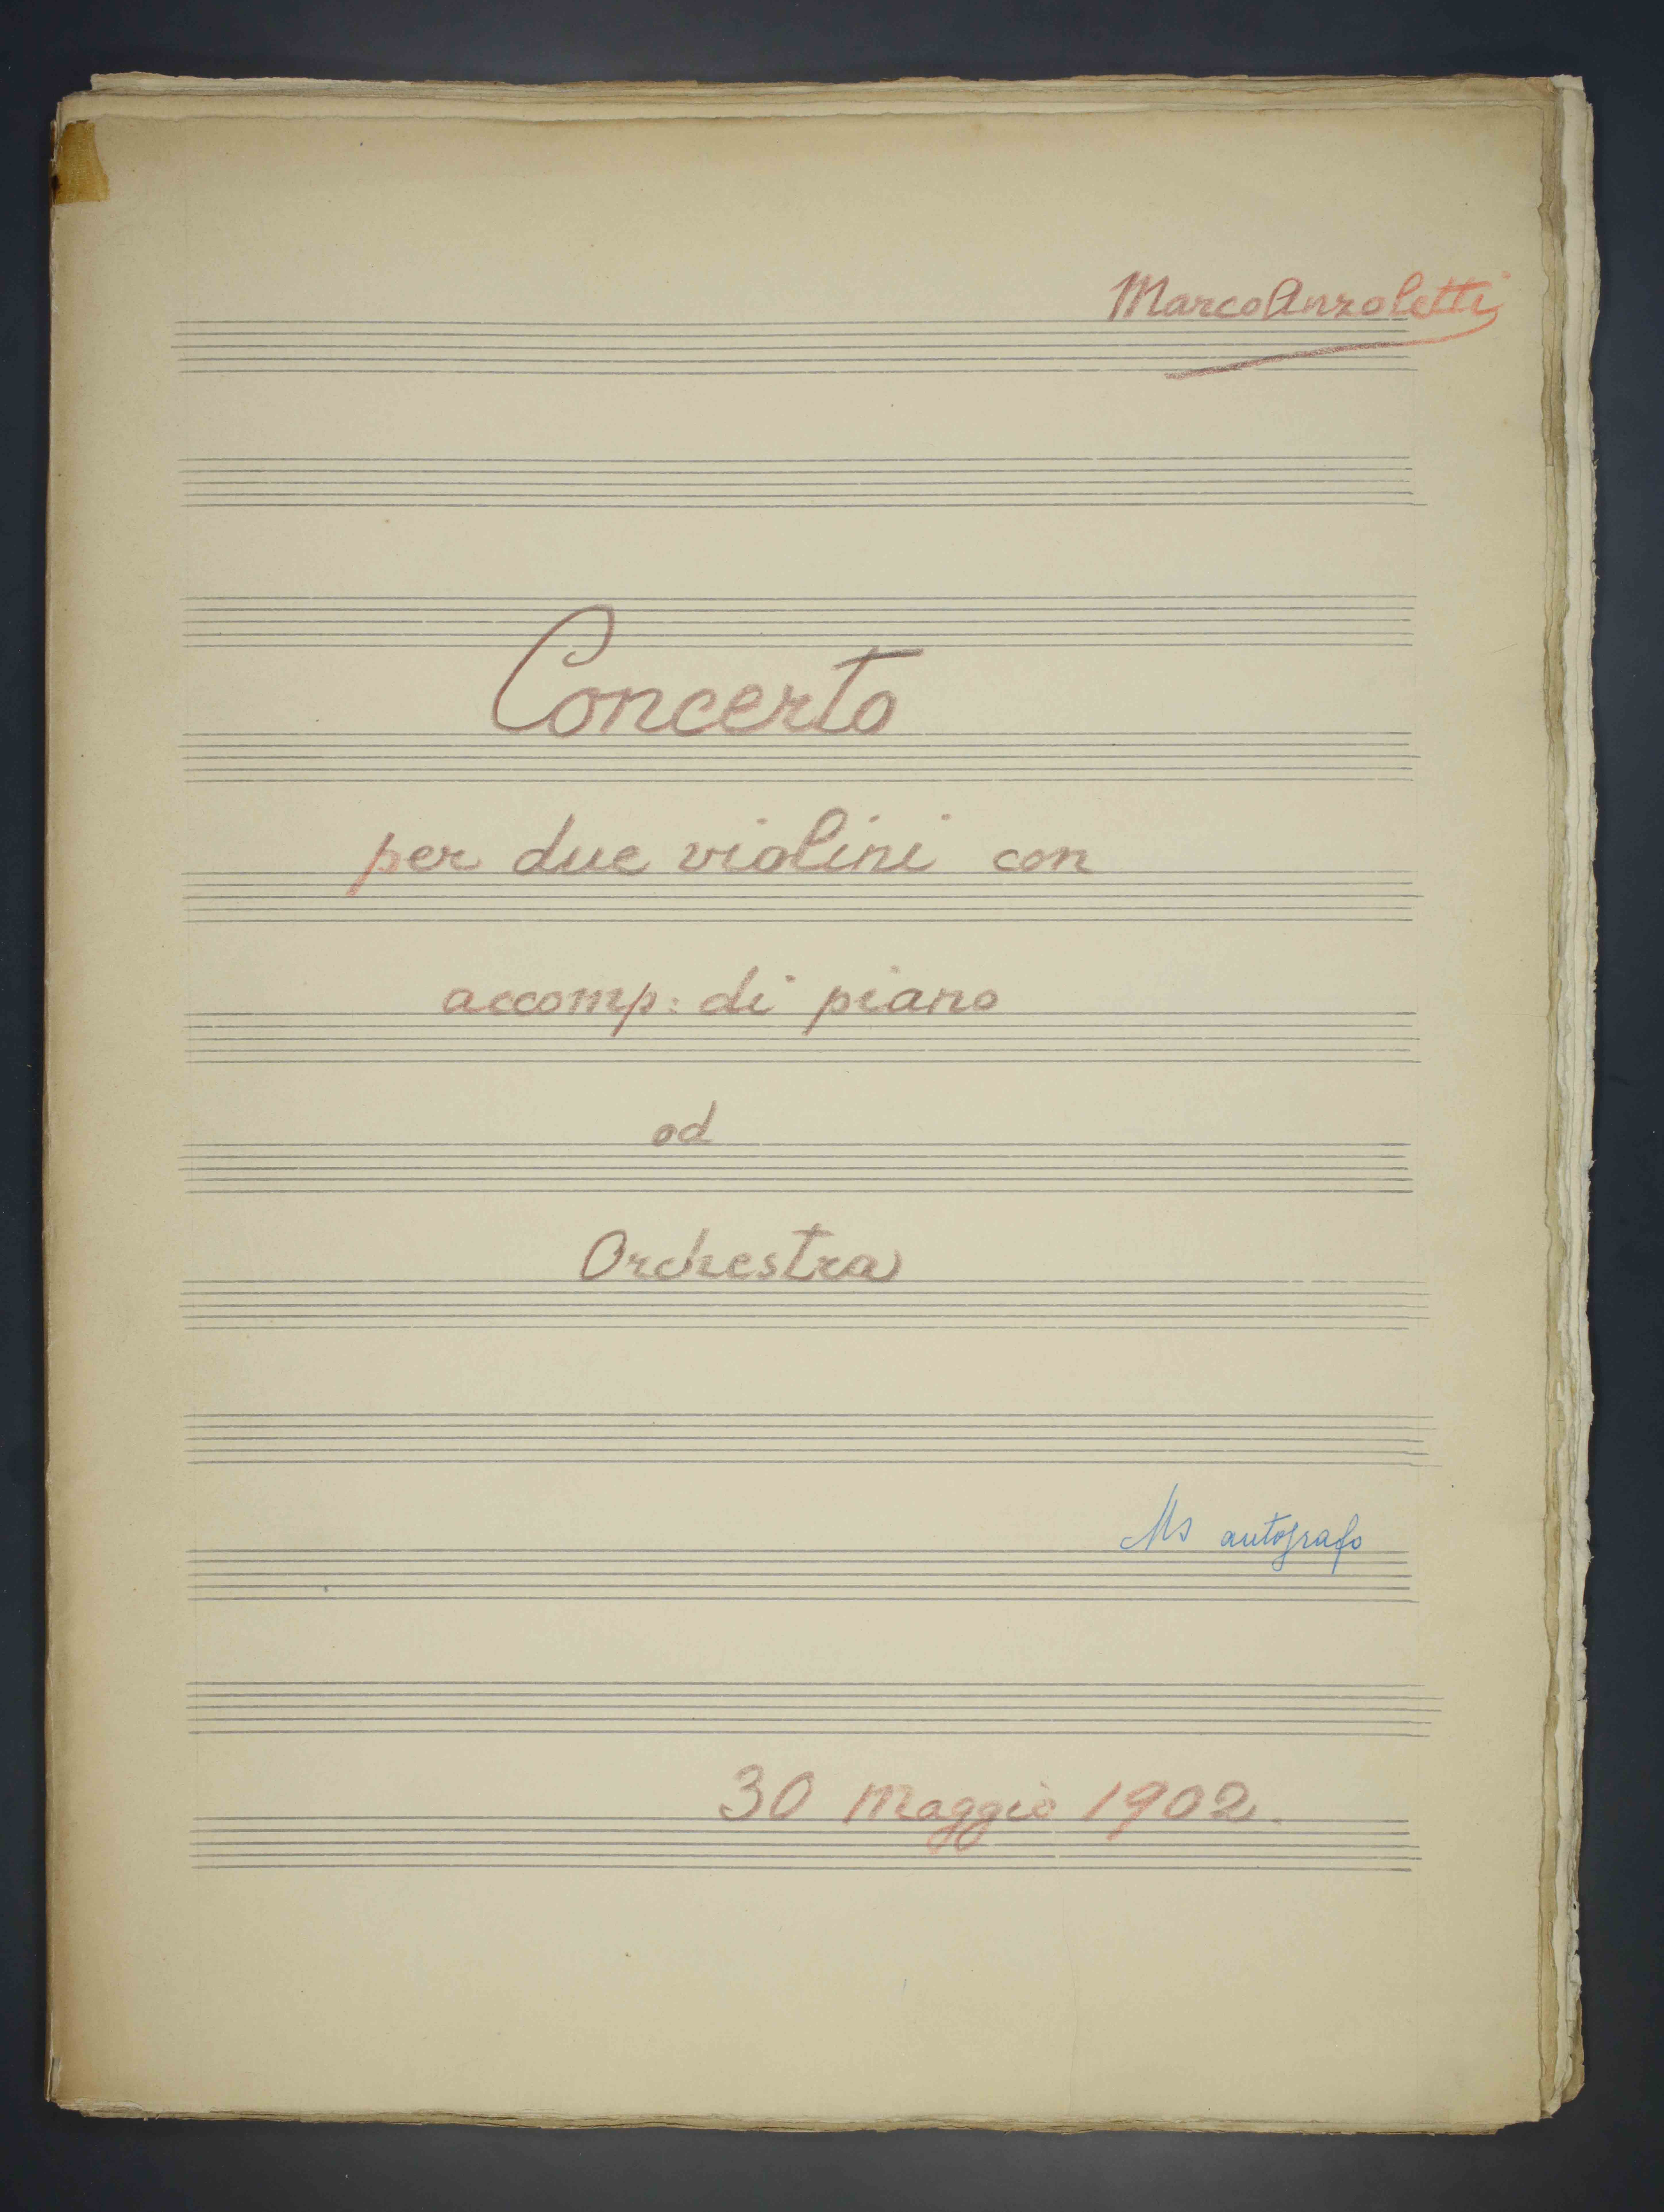 Marco Anzoletti
Concerto
per due violini con
accomp: di piano
od
Orchestra
Ms autografo
30 Maggio 1902.